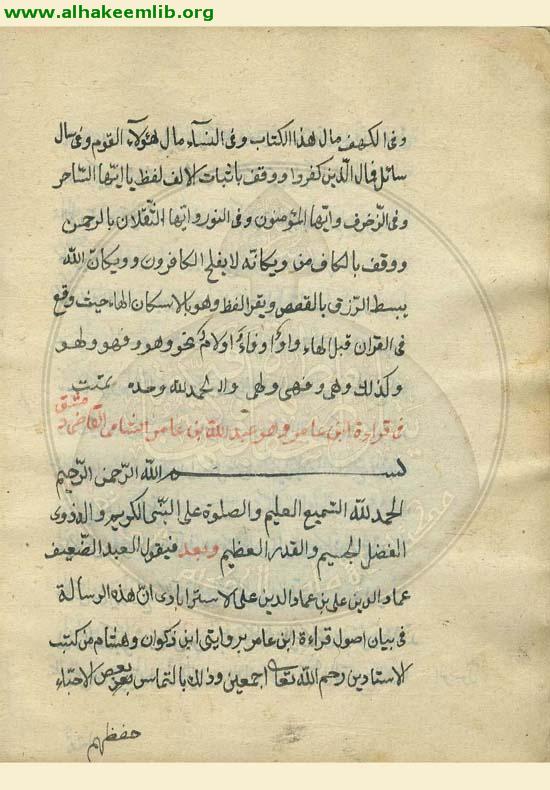 www.alhakeemlib.org
وفى الكهف مال هذا الكتاب وفى النسآء مال هئولآء القوم وفى سال
سائل فمال الذين كفروا ووقف باثبات الالف لفظ يا ايّها الساحر
وفى الزخرف وايّها المؤمنون وفى النور وايّها الثقلان بالرحمن
ووقف بالكاف من ويكانه لا يفلح الكافرون وويكانّ الله
يبسط الرزق بالقصص ويقرا لفظ وهو بالاسكان الهاء حيث وقع
فى القران قبل الهاء واوًا اوفاءً اولام نحو وهو وفهو ولهو
وكذلك وهى وفهى ولهى والحمد لله وحده تمت
فى قراءة ابن عامر وهو عبد الله بن عامر الشامى القاضى دمشق
بسم الله الرّحمن الرّحيم
الحمد لله السّميع العليم والصلوة على النبّى الكريم واله ذوى
الفضل الجسيم والقدر العظيم وبعد فيقول العبد الضّعيف
عماد الدين على بن عماد الدين على الاسترابادى انّ هذه الرسالة
فى بيان اصول قراءة ابن عامر بروايتى ابن ذكوان وهشام من كتب
الاستادين رحهم الله تعا اجمعين وذلك بالتماس بعض الاحبّاء
حفظهم